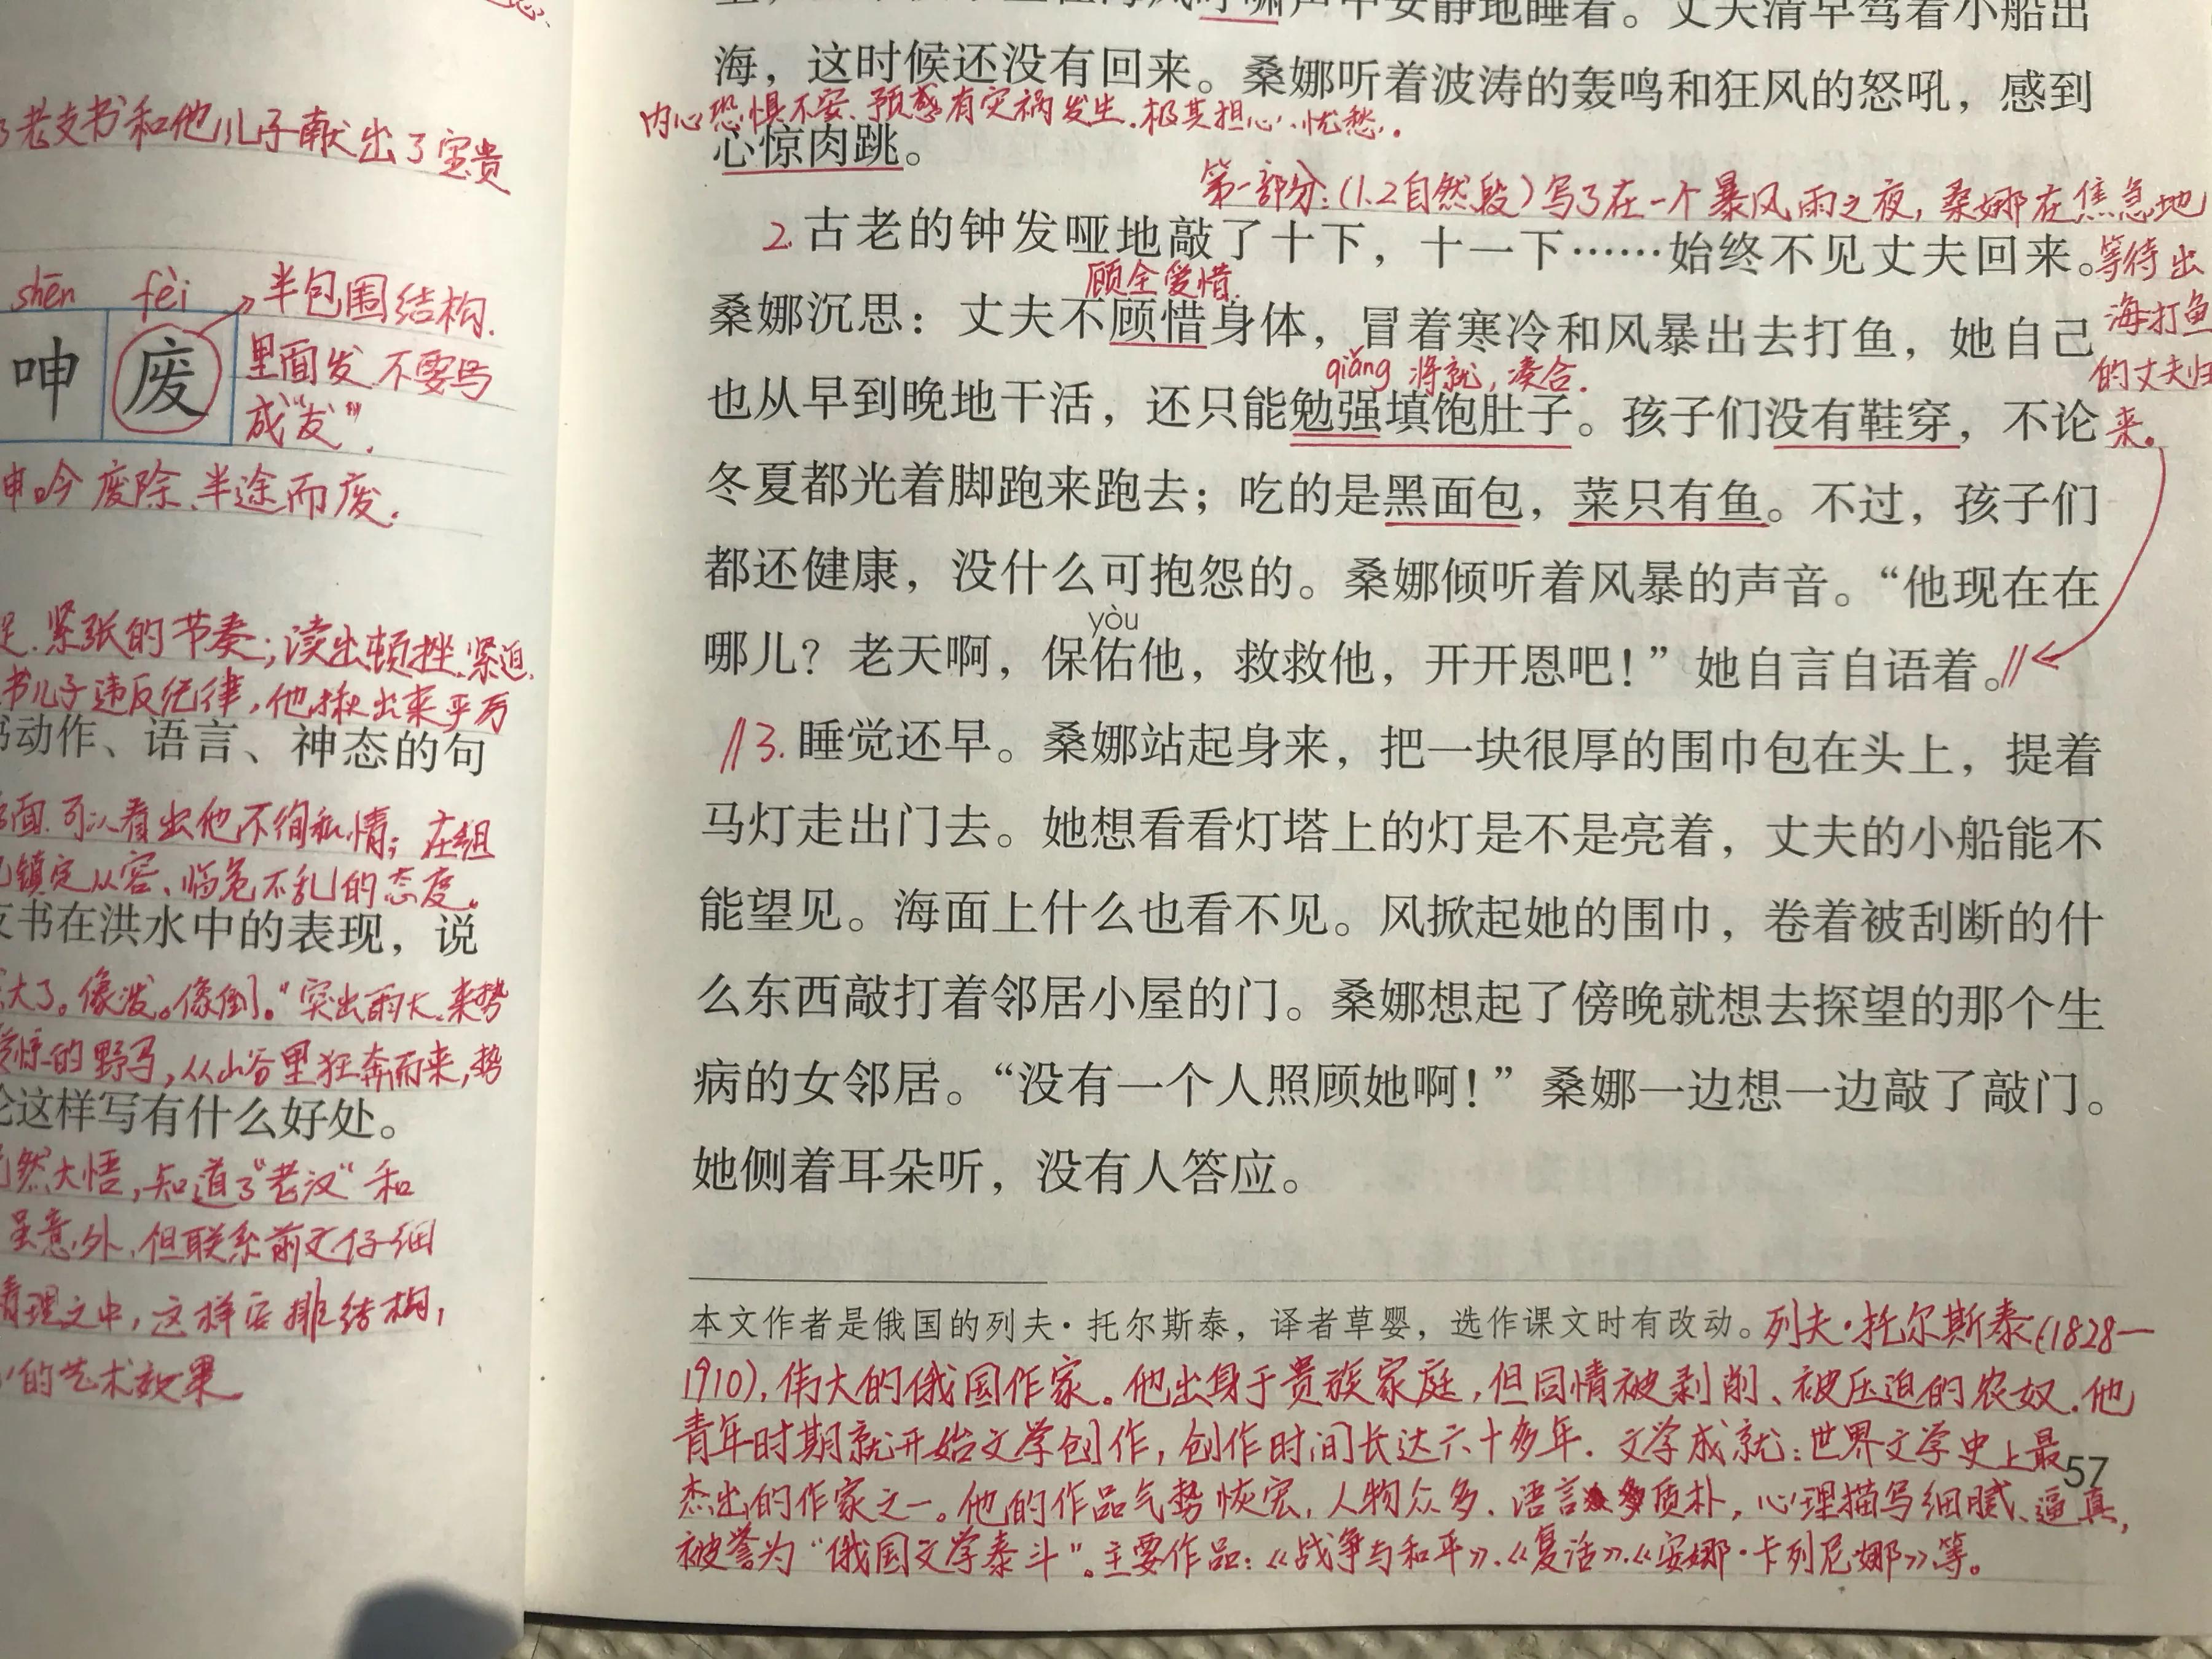 老支书和他儿子献出了宝贵
shēn fèi
呻 废
半包围结构.
里面发 不要写
成"友".
呻吟 废除、半途而废.
紧张的节奏；读出顿挫、紧迫.
书儿子违反纪律，他揪出来平万
动作、语言、神态的句
面.可以看出他不徇私情；在组
镇定从容、临危不乱的态度。
书在洪水中的表现，说
大了。像泼。像倒。"突出雨大、来势
惊的野马，从山谷里狂奔而来，势
这样写有什么好处。
然大悟，知道了"老汉"和
意外，但联系前文仔细
理之中，这样安排结构，
的艺术效果
声中安静地睡着。丈夫清早驾着小船出
海，这时候还没有回来。桑娜听着波涛的轰鸣和狂风的怒吼，感到
内心恐惧不安、预感有灾祸发生.极其担心、忧愁.
心惊肉跳。
第一部分：（1.2自然段）写了在一个暴风雨之夜，桑娜在焦急地
等待出
海打鱼
的丈夫归
来。
2.古老的钟发哑地敲了十下，十一下……始终不见丈夫回来。
顾全爱惜.
桑娜沉思：丈夫不顾惜身体，冒着寒冷和风暴出去打鱼，她自己
qiǎng 将就，凑合.
也从早到晚地干活，还只能勉强填饱肚子。孩子们没有鞋穿，不论
冬夏都光着脚跑来跑去；吃的是黑面包，菜只有鱼。不过，孩子们
都还健康，没什么可抱怨的。桑娜倾听着风暴的声音。“他现在在
yòu
哪儿？老天啊，保佑他，救救他，开开恩吧！”她自言自语着。//
//3.睡觉还早。桑娜站起身来，把一块很厚的围巾包在头上，提着
马灯走出门去。她想看看灯塔上的灯是不是亮着，丈夫的小船能不
能望见。海面上什么也看不见。风掀起她的围巾，卷着被刮断的什
么东西敲打着邻居小屋的门。桑娜想起了傍晚就想去探望的那个生
病的女邻居。“没有一个人照顾她啊！”桑娜一边想一边敲了敲门。
她侧着耳朵听，没有人答应。
本文作者是俄国的列夫·托尔斯泰，译者草婴，选作课文时有改动。列夫·托尔斯泰（1828—
1910），伟大的俄国作家。他出身于贵族家庭，但同情被剥削、被压迫的农奴.他
青年时期就开始文学创作，创作时间长达六十多年.文学成就：世界文学史上最
杰出的作家之一。他的作品气势恢宏，人物众多.语言质朴，心理描写细腻、逼真，
被誉为“俄国文学泰斗”。主要作品：《战争与和平》.《复活》.《安娜·卡列尼娜》等。
57